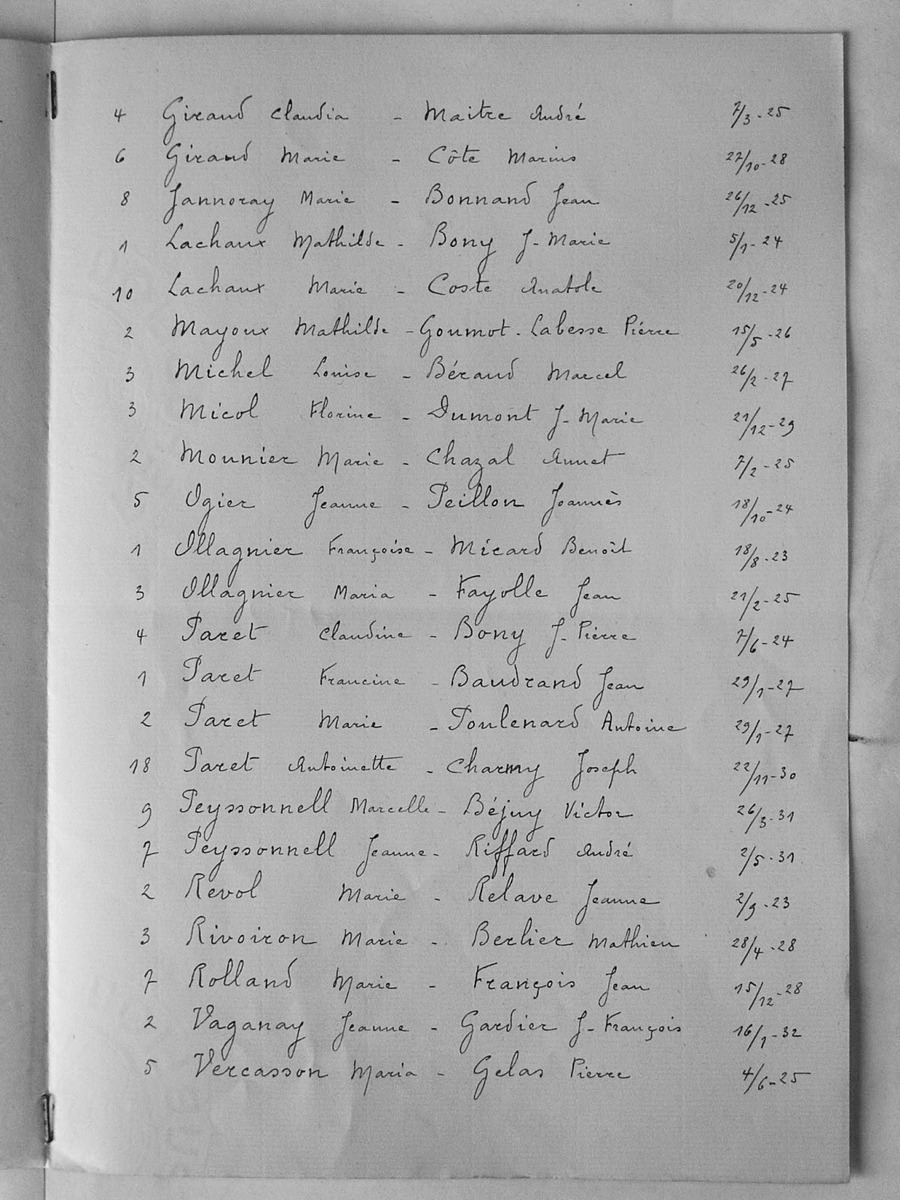 4 Giraud Claudia - Maitre André 7/3-25
6 Giraud Marie - Côte Marius 27/10-28
8 Jannoray Marie - Bonnand Jean 26/12-25
1 Lachaux Mathilde - Bony J-Marie 5/1-24
10 Lachaux Marie - Coste Anatole 20/12-24
2 Mayoux Mathilde - Goumot-Labesse Pierre 15/5-26
3 Michel Louise - Béraud Marcel 26/2-27
3 Micol Florine - Dumont J-Marie 21/12-29
2 Mounier Marie - Chazal Annet 7/2-25
5 Ogier Jeanne - Peillon Joannès 18/10-24
1 Ollagnier Françoise - Micard Benoît 18/8-23
3 Ollagnier Maria - Fayolle Jean 21/2-25
4 Paret Claudine - Bony J-Pierre 7/6-24
1 Paret Francine - Baudrand Jean 29/1-27
2 Paret Marie - Poulenard Antoine 29/1-27
18 Paret Antoinette - Charmy Joseph 22/11-30
9 Peyssonnell Marcelle - Béjuy Victor 26/3-31
7 Peyssonnell Jeanne - Riffard André 2/5-31
2 Revol Marie - Relave Jeanne 2/9-23
3 Rivoiron Marie - Berlier Mathieu 28/4-28
7 Rolland Marie - François Jean 15/12-28
2 Vaganay Jeanne - Gardier J-François 16/1-32
5 Vercasson Maria - Gelas Pierre 4/6-25